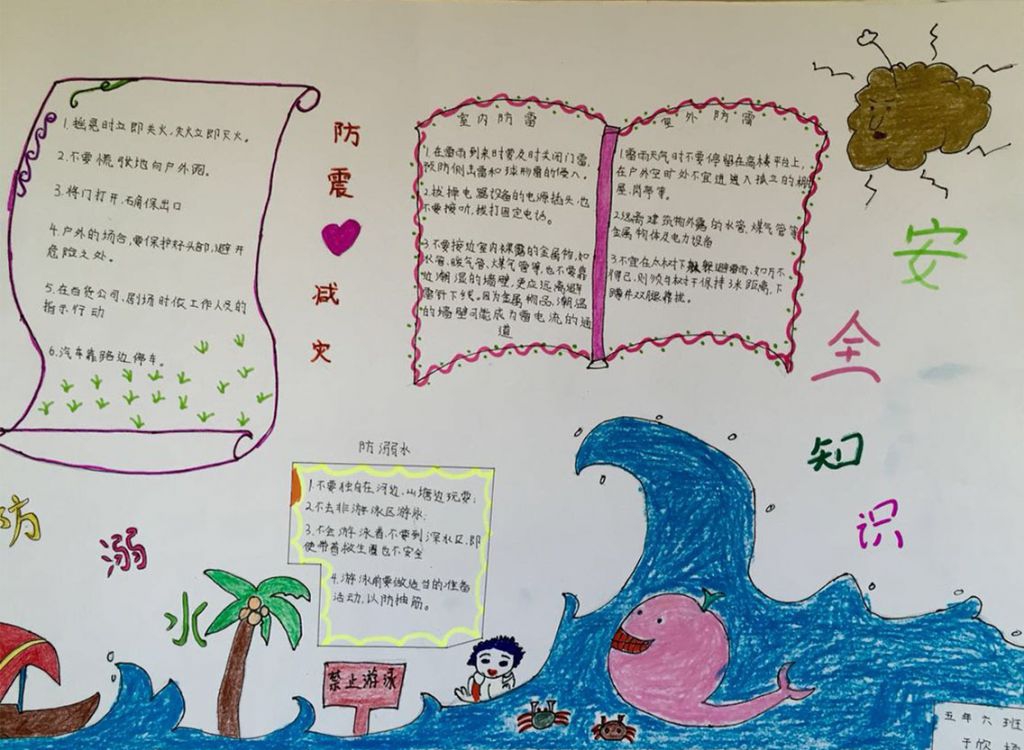 1.摇晃时立即关火,失火立即灭火。
2.不要慌张地向户外跑。
3.将门打开,确保出口
4.户外的场合,要保护好头部,避开
危险之处。
5.在百货公司、剧场时依工作人员的
指示行动
6.汽车靠路边停车。
防
震
减
灾
室内防雷
1.在雷雨到来时要及时关闭门窗,
预防侧击雷和球形雷的侵入。
2.拔掉电器设备的电源插头,也
不要接听,拨打固定电话。
3.不要接近室内裸露的金属物,如
水管、暖气管、煤气管等,也不要靠
近潮湿的墙壁,更应远离避
雷针下线。因为金属物品、潮湿
的墙壁可能成为雷电流的通
道
室外防雷
1.雷雨天气时不要停留在高楼平台上,
在户外空旷处不宜进入孤立的棚
屋、岗亭等。
2.远离建筑物外露的水管、煤气管等
金属物体及电力设备
3.不宜在大树下躲避雷雨,如万不
得已,则须与树干保持3米距离,下
蹲并双腿靠拢。
安
全
知
识
防溺水
1.不要独自在河边、山塘边玩耍;
2.不去非游泳区游泳;
3.不会游泳者,不要到深水区,即
使带着救生圈也不安全
4.游泳前要做适当的准备
活动,以防抽筋。
防
溺
水
禁止游泳
五年六班
于欣